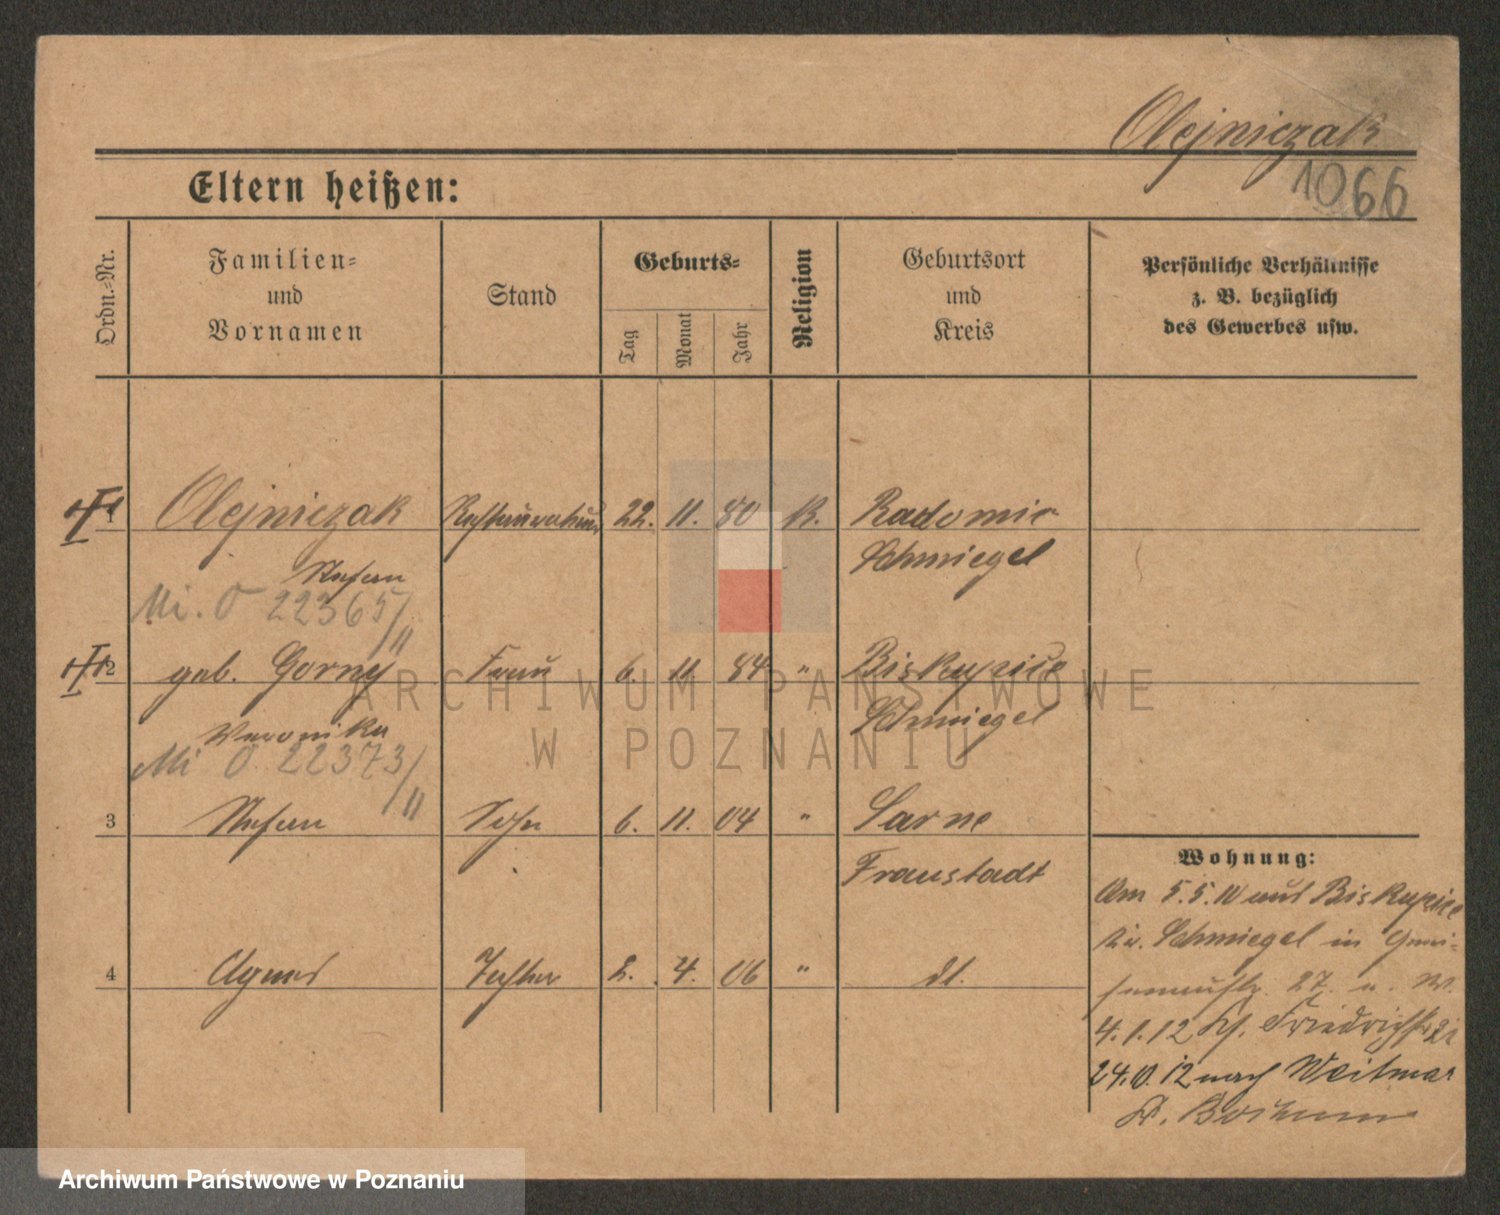 Olejniczak
1066
Eltern heißen:
Ordn.-Nr.
Familien-
und
Vornamen
Stand
Geburts-
Tag
Monat
Jahr
Religion
Geburtsort
und
Kreis
Persönliche Verhältnisse
z. B. bezüglich
des Gewerbes usw.
1 Olejniczak 22. 11. 80 K. Radomir
Stefan Schmiegel
Mi. O 22365/11
2 geb. Gorny Frau 6. 11 84 " Biskupice
Veronika Schmiegel
Mi O 22373/11
3 Stefan Sohn 6. 11. 04 " Sarne
Fraustadt
4 Agnes Tochter 2. 4. 06 " dt.
Wohnung:
Am 5.5.10 aus Biskupice
Kr. Schmiegel in Gnei-
senaustr. 27. u. W.
4.1.12 Friedrichstr
24.10.12 nach Weitmar
Kr. Bochum
ARCHIWUM PAŃSTWOWE
W POZNANIU
Archiwum Państwowe w Poznaniu